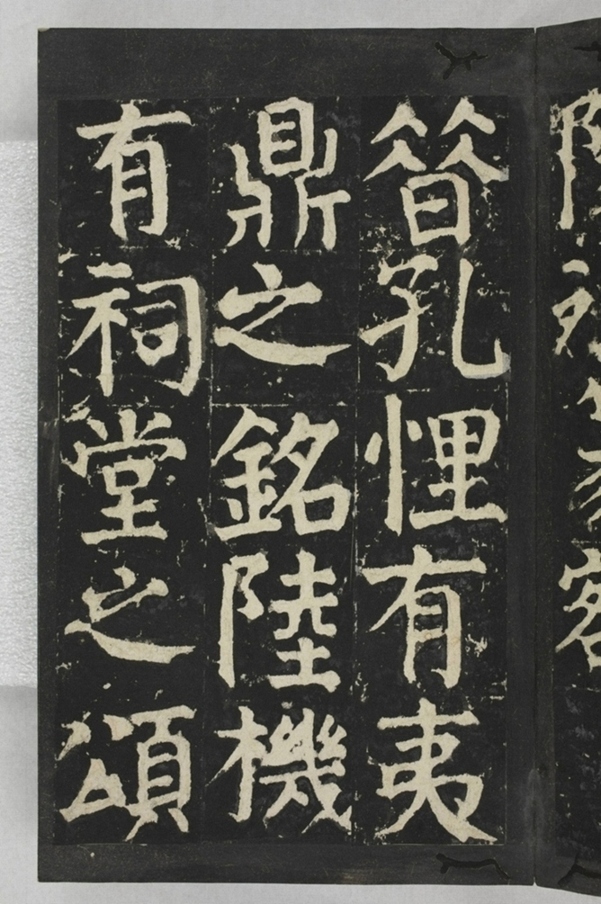 㫺孔悝有夷
鼎之銘陸機
有祠堂之頌